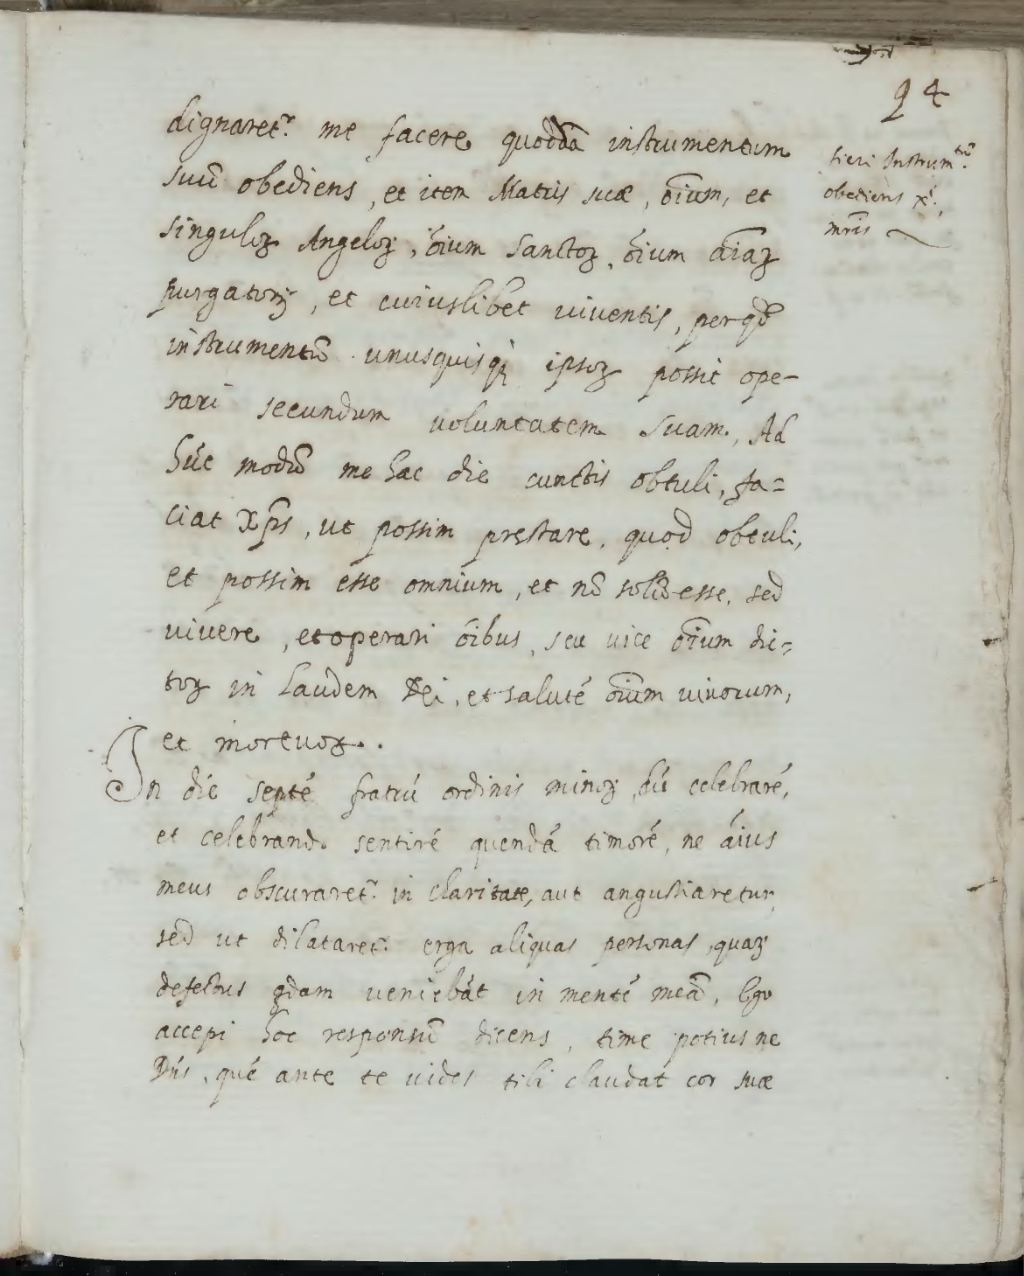 94
dignaret.r me facere quoddā instrumentum
suū obediens, et item Matris suæ, oīum, et
singuloꝝ Angeloꝝ, oīum Sanctoꝝ, oīum aīaꝝ
purgatorij, et cuiuslibet viventis, per qd̄
instrumentū unusquisq; ipsoꝝ possit ope-
rari secundum voluntatem suam, Ad
húc modū me hac die cunctis obtuli, fa=
ciat Xps, ut possim pręstare, quod obtuli,
et possim esse omnium, et nō solū esse, sed
vivere, et operari oībus, seu vice oīum dic-
toꝝ in laudem Dei, et saluté oīum vivorum,
et mortuoꝝ.
In die septé fratrú ordinis minoꝝ, dú celebraré,
et celebrando sentiré quendá timoré, ne áius
meus obscuraret.r in claritate, aut angustiaretur
sed ut dilataret.r erga aliquas personas, quaꝝ
defectus qdam veniebát in menté meā, Ego
accepi hoc responsū dicens, time potius ne
Dñs, qué ante te vides tibi claudat cor suæ
fieri Instrum.tū
obediens Xi.,
mris